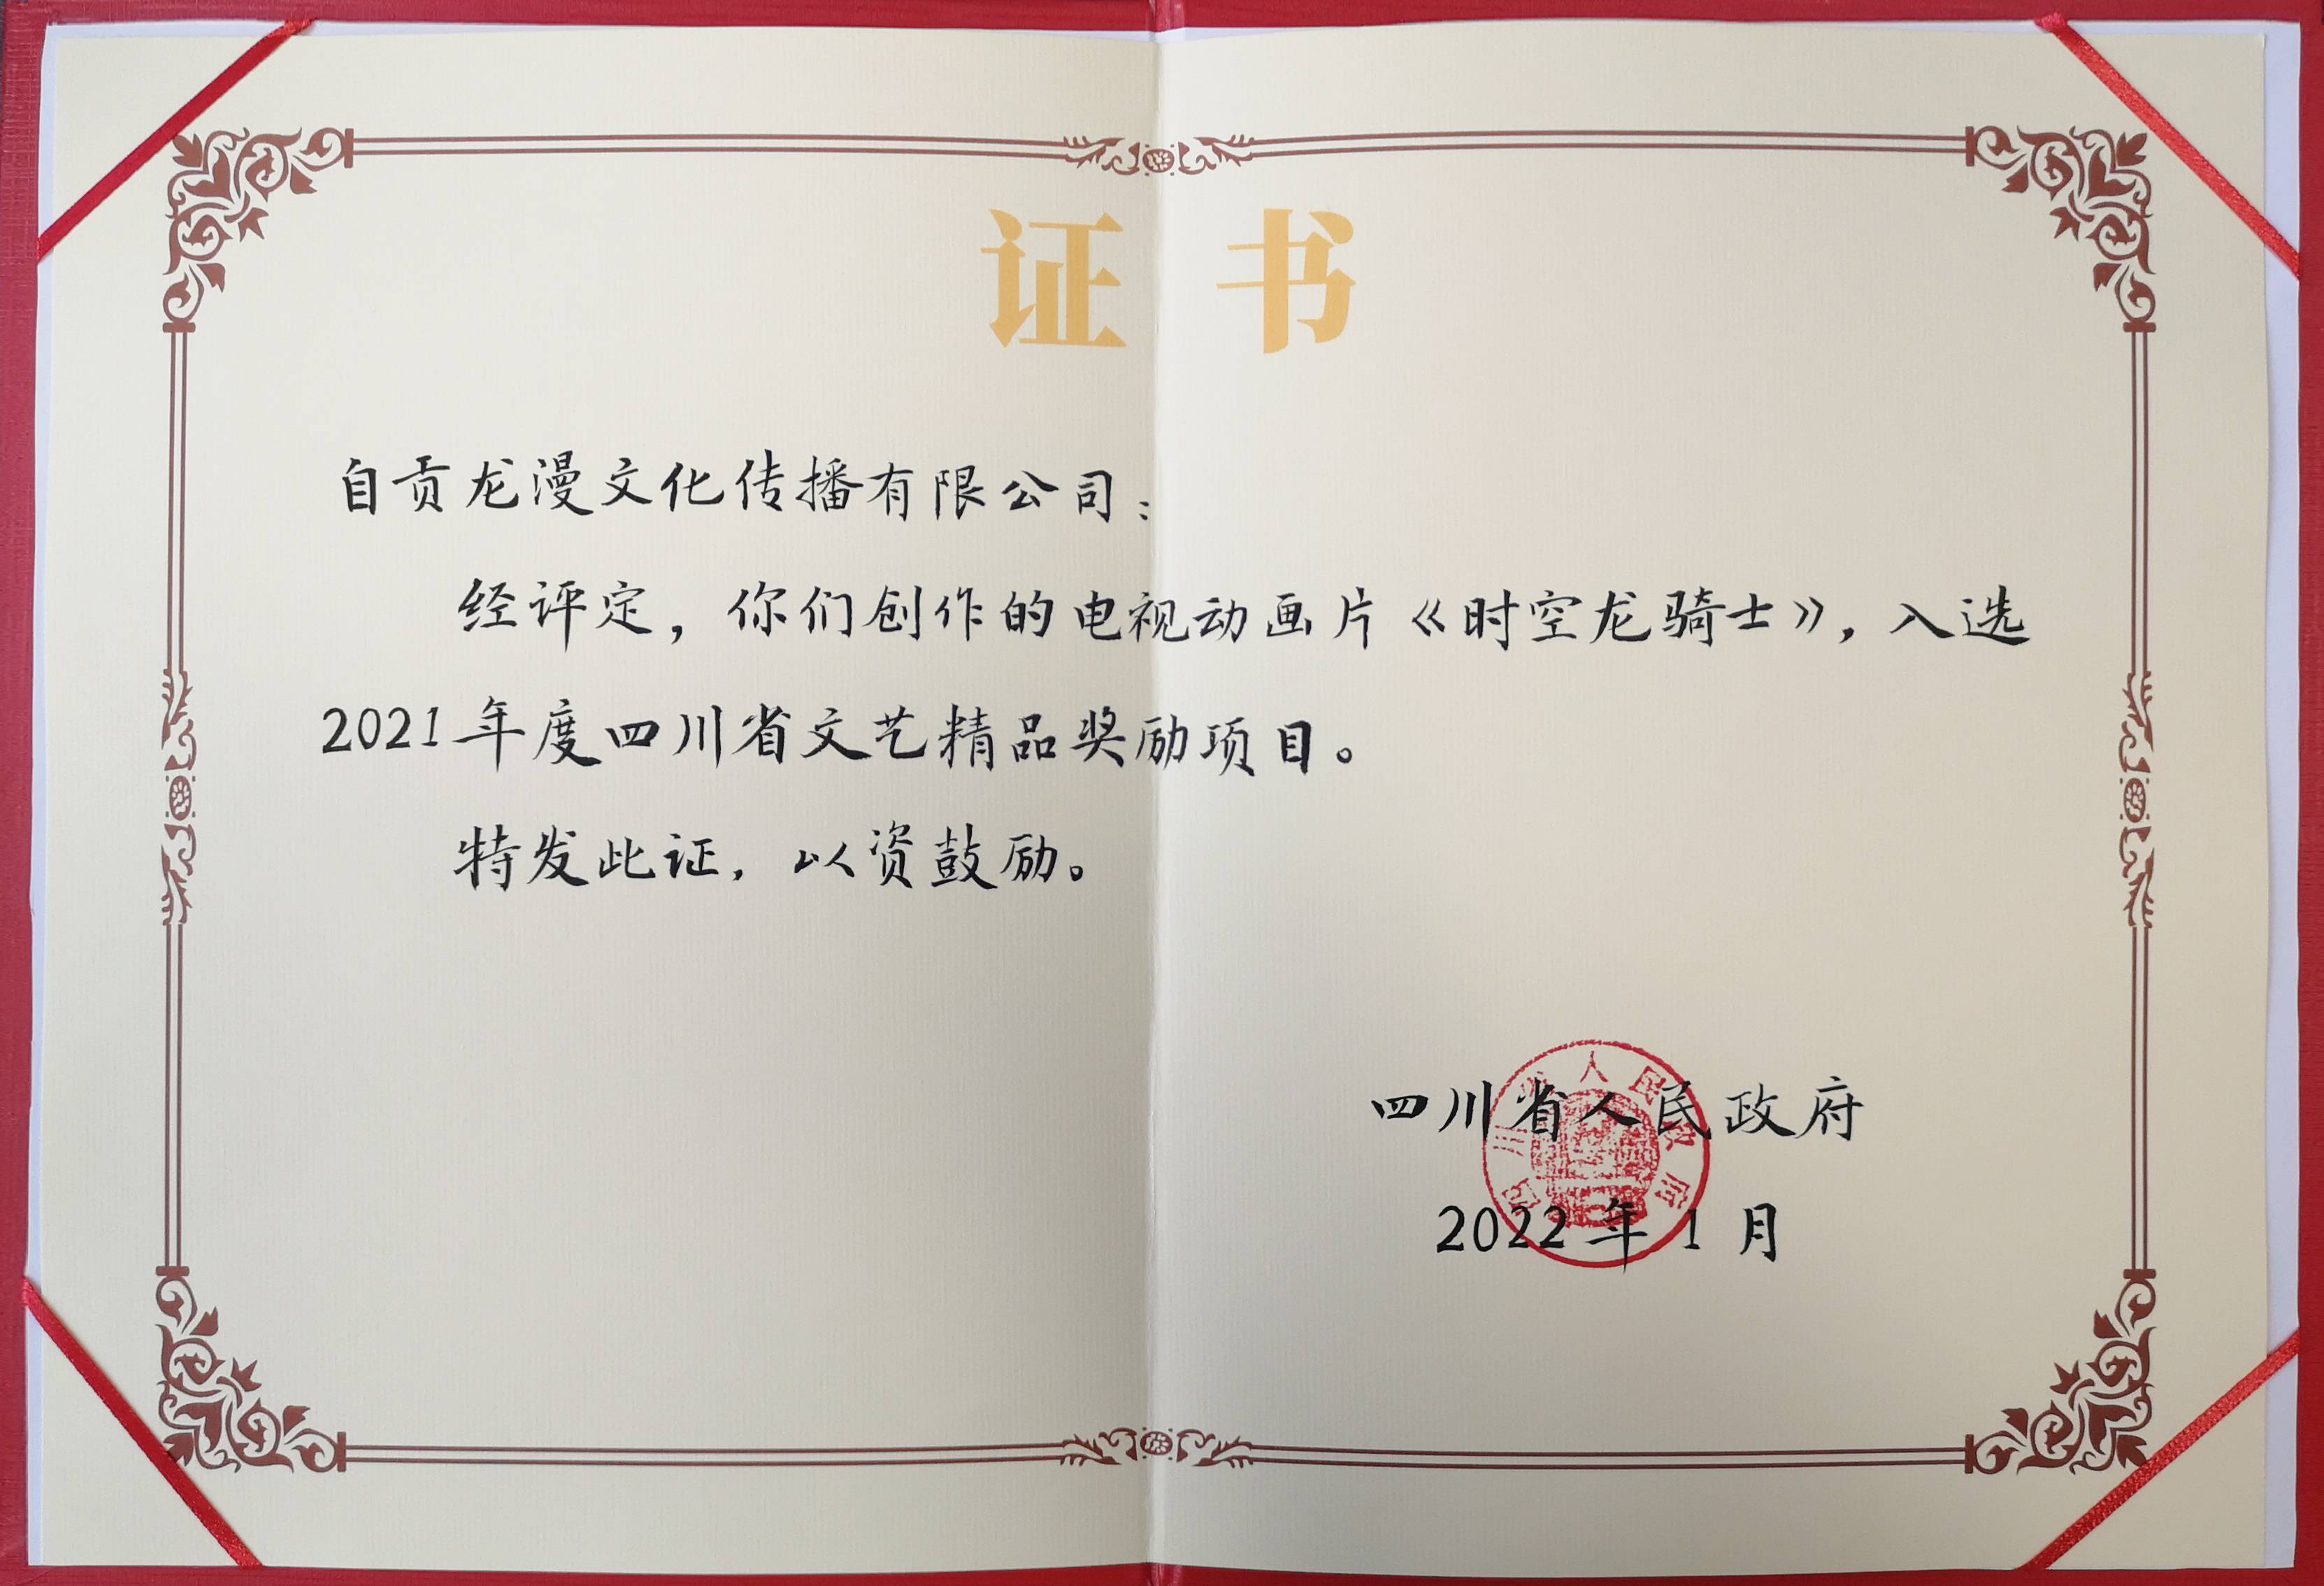 证书
自贡龙漫文化传播有限公司：
经评定，你们创作的电视动画片《时空龙骑士》，入选
2021年度四川省文艺精品奖励项目。
特发此证，以资鼓励。
四川省人民政府
四川省人民政府
2022年1月